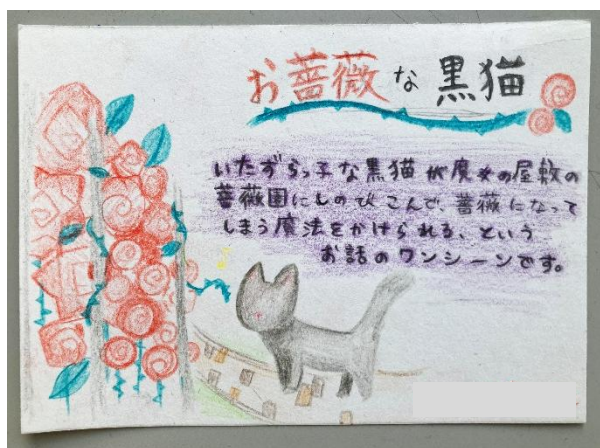 お薔薇な黒猫
いたずらっ子な黒猫が魔女の屋敷の
薔薇園にしのびこんで、薔薇になって
しまう魔法をかけられる、という
お話のワンシーンです。